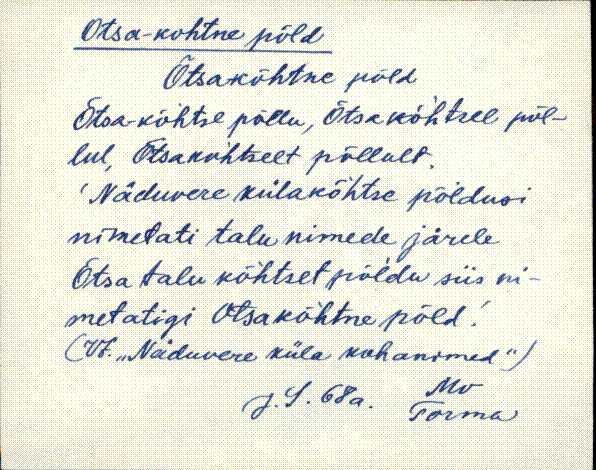 Otsa-kohtne põld
Õtsakõhtne põld
Õtsa-kõhtse põllu, Õtsakõhtsel põl-
lul, Õtsakõhtselt põllult.
'Näduvere külakõhtse põldusi
nimetati talu nimede järele
Õtsa talu kõhtset põldu siis ni-
metatigi Otsakõhtne põld.'
(Vt. „Näduvere küla kohanimed")
J. S. 68a. Mv
Torma